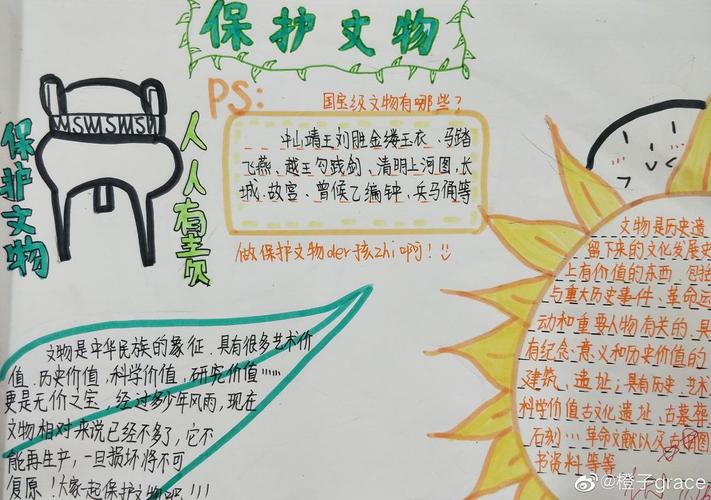 保护文物
PS:
国宝级文物有哪些?
中山靖王刘胜金缕玉衣、马踏
飞燕、越王勾践剑、清明上河图,长
城、故宫、曾侯乙编钟、兵马俑等
做保护文物der孩zhi啊!
保护文物
人人有责
WSWSWSW
文物是中华民族的象征,具有很多艺术价
值、历史价值,科学价值,研究价值……
更是无价之宝,经过多少年风雨,现在
文物相对来说已经不多了,它不
能再生产,一旦损坏将不可
复原!大家一起保护文物吧!!!
文物是历史遗
留下来的文化发展史
上有价值的东西,包括
与重大历史事件、革命运
动和重要人物有关的,具
有纪念意义和历史价值的
建筑、遗址;具有历史、艺术
科学价值古文化遗址、古墓葬
石刻…革命文献以及古
书资料等等
@橙子grace